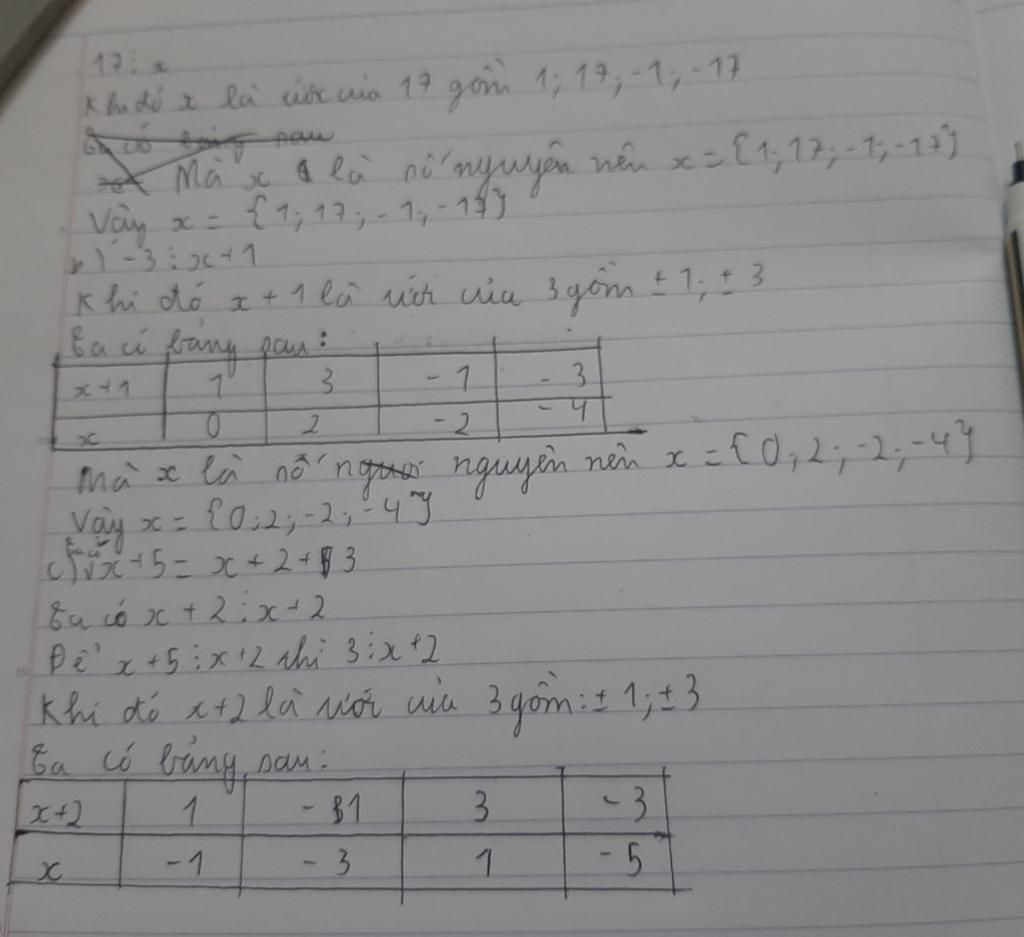 17 ⋮ x
Khi đó x là ước của 17 gồm 1; 17; -1; -17
Ta có bảng sau
Mà x là số nguyên nên x = {1; 17; -1; -17}
Vậy x = {1; 17; -1; -17}
b) -3 ⋮ x+1
Khi đó x + 1 là ước của 3 gồm ± 1; ± 3
Ta có bảng sau:
x+1 1 3 -1 -3
x 0 2 -2 -4
Mà x là số nguyên nên x = {0; 2; -2; -4}
Vậy x = {0; 2; -2; -4}
c) Ta có x+5 = x+2+3
Ta có x+2 ⋮ x+2
Để x+5 ⋮ x+2 thì 3 ⋮ x+2
Khi đó x+2 là ước của 3 gồm: ± 1; ± 3
Ta có bảng sau:
x+2 1 -1 3 -3
x -1 -3 1 -5